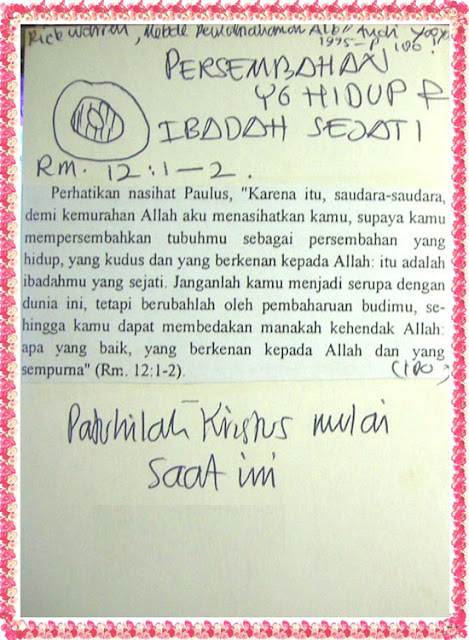 Rick Warren, Metode Pemahaman Alk" Andi Yogya
1995-p 106!
PERSEMBAHAN
YG HIDUP &
IBADAH SEJATI
RM. 12:1-2.
Perhatikan nasihat Paulus, "Karena itu, saudara-saudara,
demi kemurahan Allah aku menasihatkan kamu, supaya kamu
mempersembahkan tubuhmu sebagai persembahan yang
hidup, yang kudus dan yang berkenan kepada Allah: itu adalah
ibadahmu yang sejati. Janganlah kamu menjadi serupa dengan
dunia ini, tetapi berubahlah oleh pembaharuan budimu, se-
hingga kamu dapat membedakan manakah kehendak Allah:
apa yang baik, yang berkenan kepada Allah dan yang
sempurna" (Rm. 12:1-2).
Patuhilah Kristus mulai
saat ini